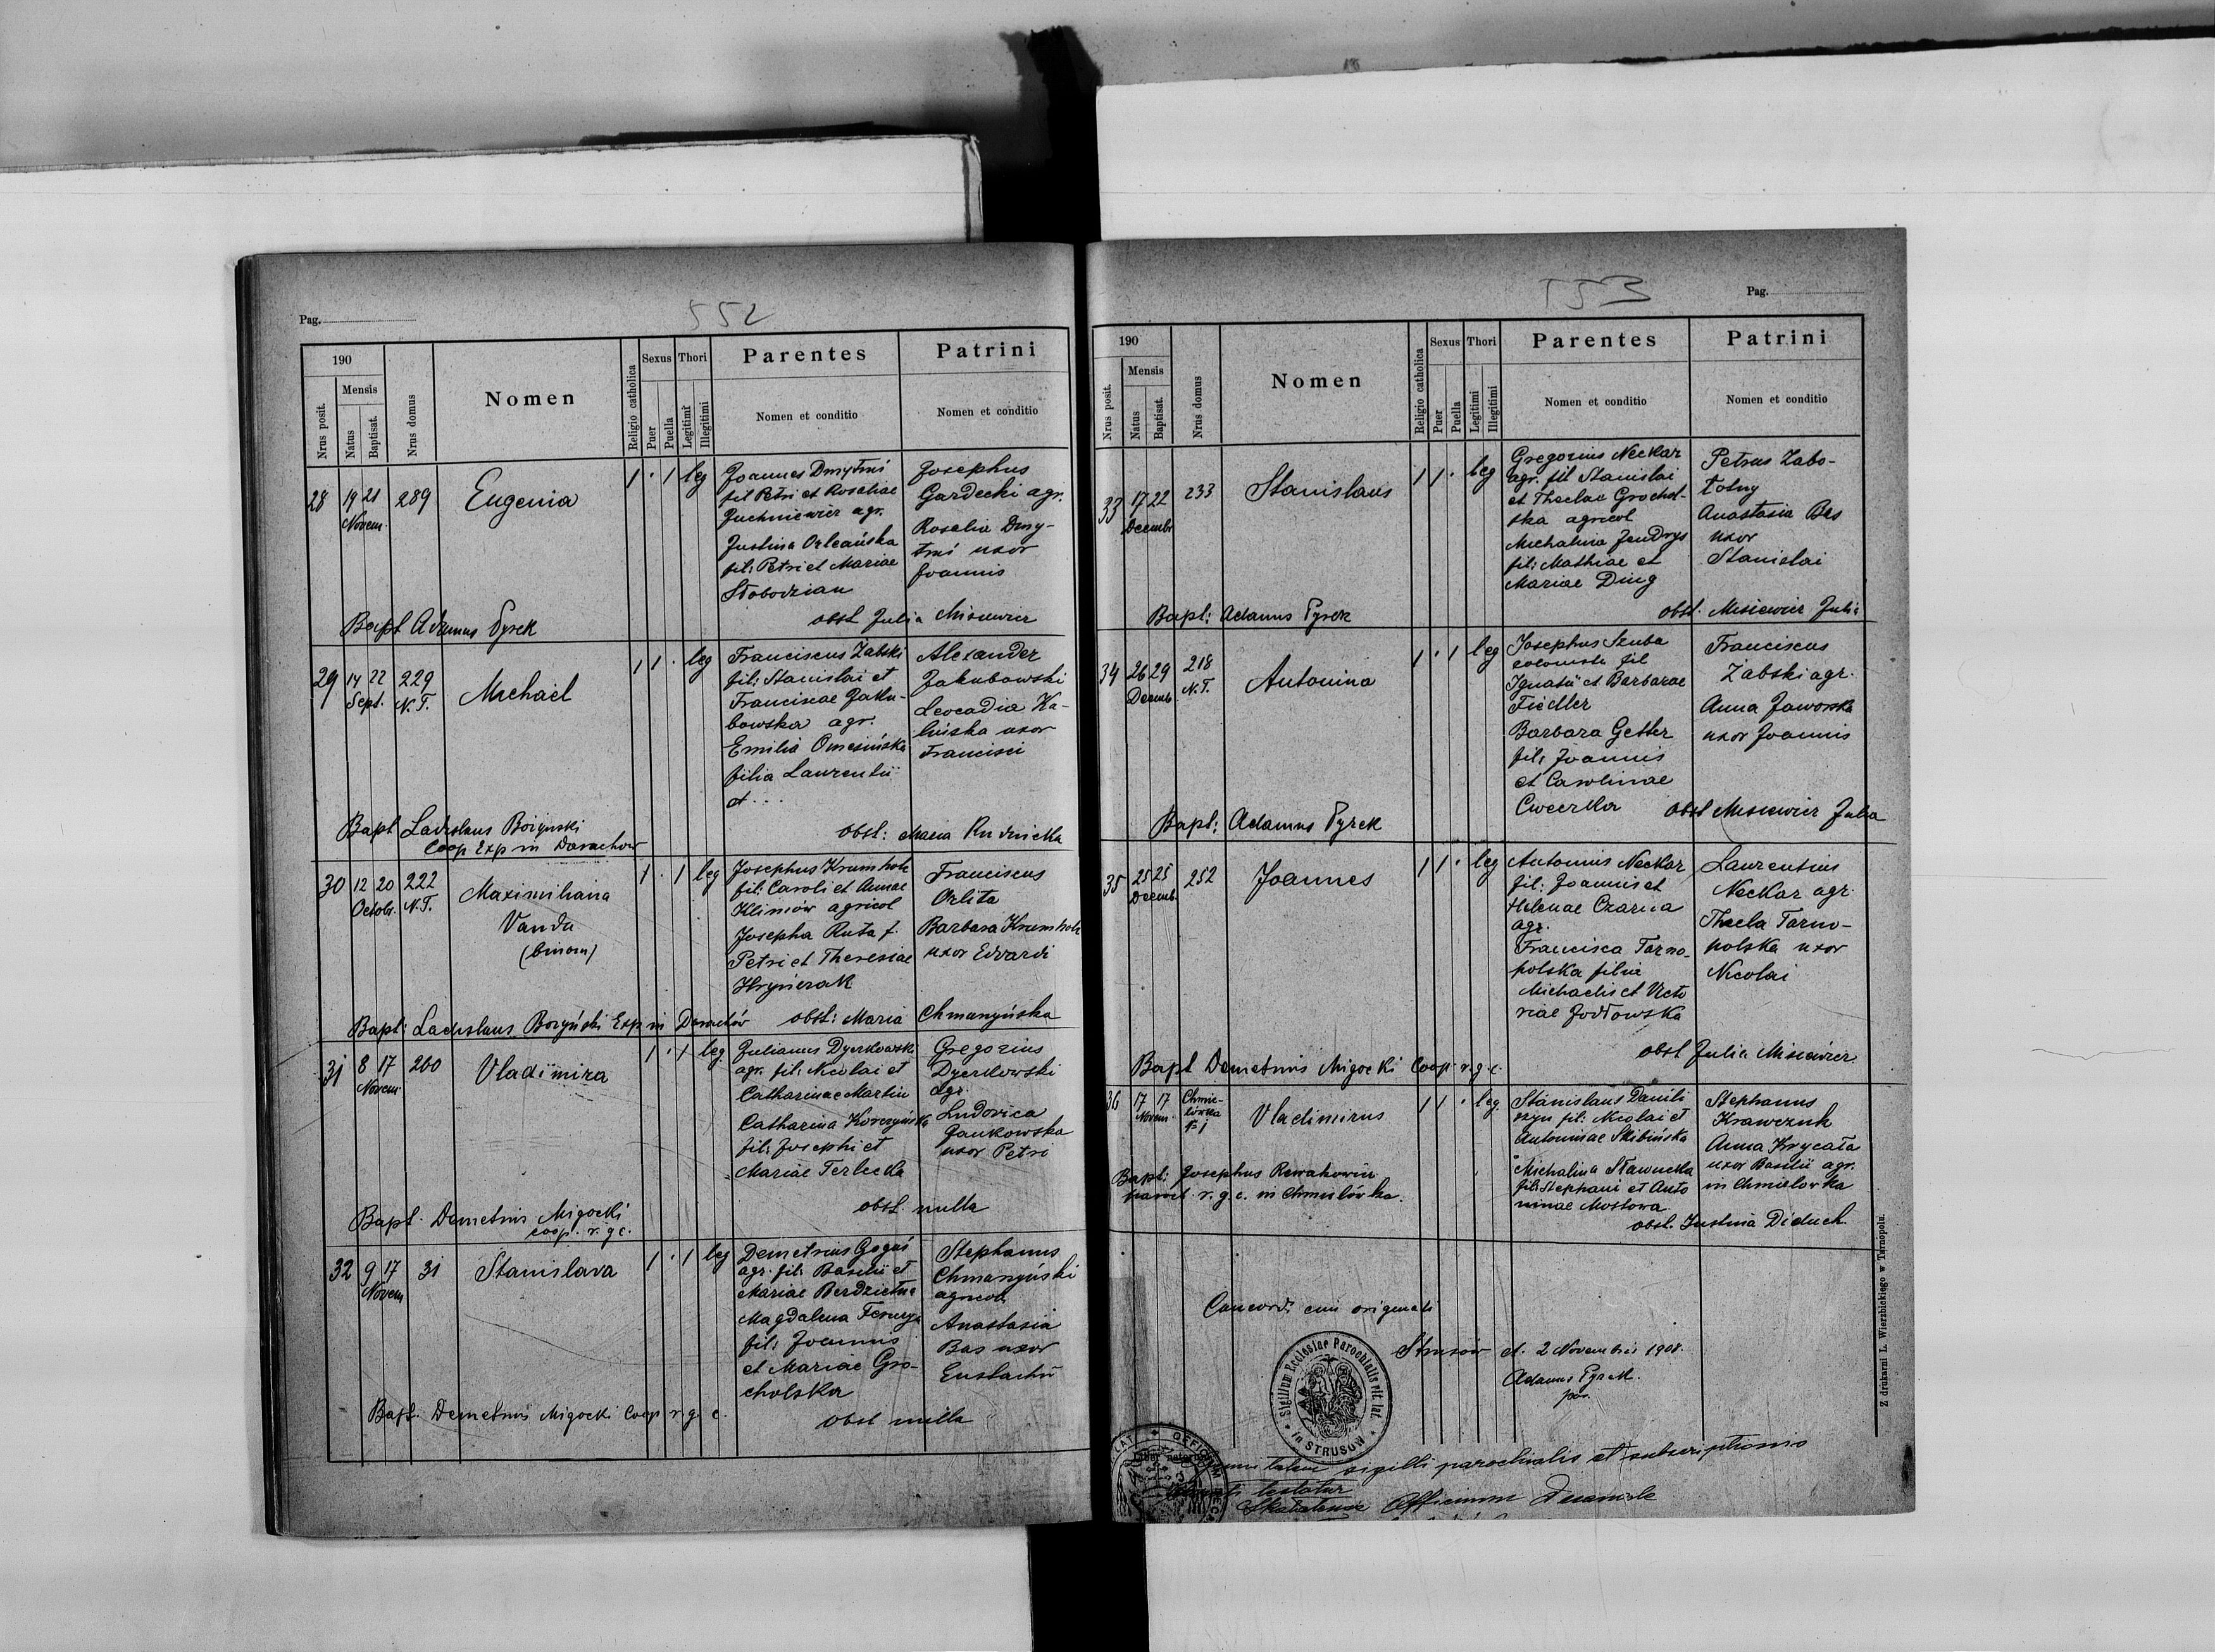 552
Pag.
190
Mensis
Nrus posit.
Natus
Baptisat.
Nrus domus
Nomen
Religio catholica
Sexus
Puer
Puella
Thori
Legitimi
Illegitimi
Parentes
Nomen et conditio
Patrini
Nomen et conditio
28 19 21 289 Eugenia 1 · 1 leg
Novem.
Joannes Dmytruś
fil Petri et Rosaliae
Juchniewicz agr.
Justina Orleańska
fil: Petri et Mariae
Słobodzian
Josephus
Gardecki agr.
Rosalia Dmy-
truś uxor
Joannis
Bapt Adamus Pyrek
obst Julia Misiewicz
29 14 22 229 Michaël 1 1 · leg
Sept. N.T.
Franciscus Żabski
fil: Stanislai et
Franciscae Jaku-
bowska agr.
Emilia
filia Laurentii
et ...
Alexander
Jakubowski
Leocadia Ka-
lińska uxor
Francisci
Bapt Ladislaus Bożynski
Coop Exp in Darachow
obst: Maria Rudnicka
30 12 20 222 Maximiliana 1 · 1 leg
Octobr. N.T.
Vanda
(binom)
Josephus Krumholz
fil: Caroli et Annae
Klimów agricol
Josepha Ruta f.
Petri et Theresiae
Hryńczak
Franciscus
Orlita
Barbara Krumholz
uxor Edvardi
Bapt: Ladislaus Bożyński Exp in Darachów obst: Maria Chmanyńska
31 8 17 260 Vladimira 1 · 1 leg
Novem
Julianus Dyczkowski
agr. fil: Nicolai et
Catharinae Martin
Catharina Korczyńska
fil: Josephi et
Mariae Terlecka
Gregorius
Dyczkowski
agr.
Ludovica
Jankowska
uxor Petri
obst. nulla
Bapt. Demetrius Migocki
coop. r. g c.
32 9 17 31 Stanislava 1 · 1 leg
Novem
Demetrius Goguś
agr. fil: Basilii et
Mariae
Magdalena
fil: Joannis
et Mariae Gro-
cholska
Stephanus
Chmanyński
agricol
Anastasia
Bas uxor
Eustachii
Bapt. Demetrius Migocki Coop r. g c.
obst nulla
553
Pag.
190
Mensis
Nrus posit.
Natus
Baptisat.
Nrus domus
Nomen
Religio catholica
Sexus
Puer
Puella
Thori
Legitimi
Illegitimi
Parentes
Nomen et conditio
Patrini
Nomen et conditio
33 17 22 233 Stanislaus 1 1 · leg
Decembr
Gregorius Neckar
agr. fil Stanislai
et Theclae Grochol-
ska agricol
Michalina Jendrys
fil: Mathiae et
Mariae Ding
Petrus Zabo-
łotny
Anastasia Bas
uxor
Stanislai
Bapt: Adamus Pyrek
obst. Misiewicz Julia
34 26 29 218 Antonina 1 · 1 leg
Decemb N.T.
Josephus Szuba
colonista fil
Ignatii et Barbarae
Fiedler
Barbara Getter
fil: Joannis
et Carolinae
Cweczka
Franciscus
Żabski agr.
Anna Jaworska
uxor Joannis
Bapt: Adamus Pyrek
obst Misiewicz Julia
35 25 25 252 Joannes 1 1 · leg
Decemb.
Antonius Neckar
fil: Joannis et
Helenae Czarna
agr.
Francisca Tarno-
polska filia
Michaelis et Victo
riae Jodłowska
Laurentius
Neckar agr
Thecla Tarno-
polska uxor
Nicolai
obst Julia Misiewicz
Bapt Demetrius Migocki Coop r. g. c.
36 17 17 Chmie- Vladimirus 1 1 · leg.
Novem. lówka
Stanislaus Danili
szyn fil: Nicolai et
Antoninae Skibińska
Michalina Sławucka
fil: Stephani et Anto
ninae Mostowa
Stephanus
Krawczuk
Anna Krycała
uxor Basilii agr.
in Chmielowka
Bapt: Josephus Rewakowicz
paroch. r. g. c. in Chmielówka.
obst. Justina Diduch.
Concordi cum originali
Strusow d. 2 Novembris 1908.
Adamus Pyrek
par.
Sigillum Ecclesiae Parochialis rit. lat. in STRUSÓW
sigilli parochialis et subscriptionis
testatur
Officium Decanale
Z drukarni L. Wierzbickiego w Tarnopolu.